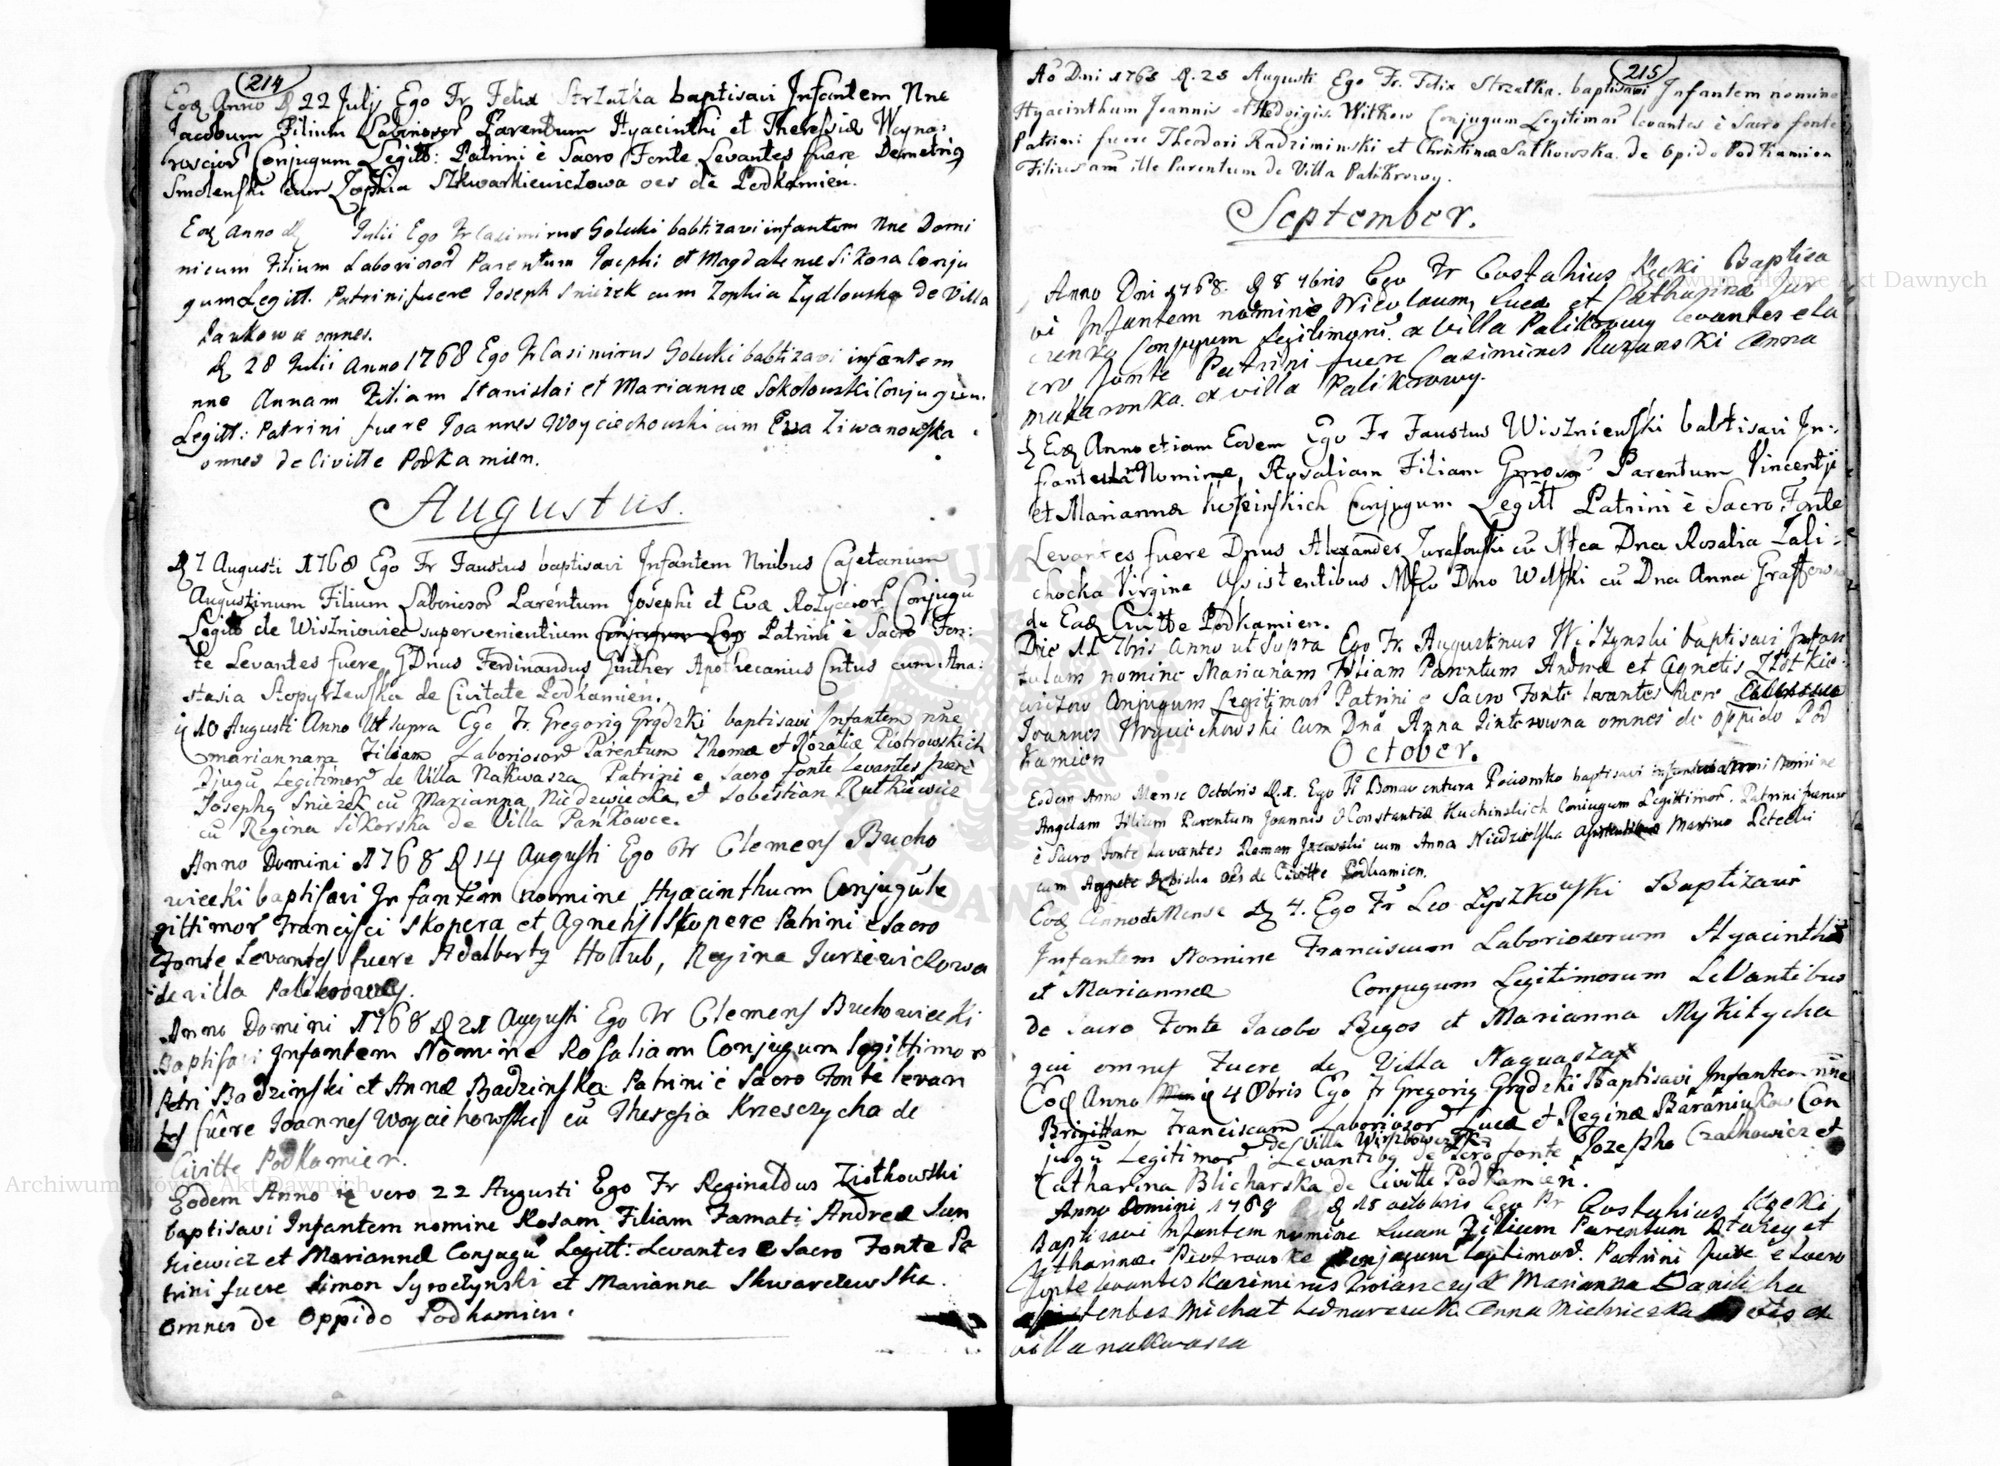 214
Eod Anno d 22 Julj Ego Fr Felix Strzałka baptisavi Infantem Nne
Jacobum Filium Laboriosor Parentum Hyacinthi et Theressiæ Woyna:
rowiców Conjugum Legitt: Patrini è Sacro Fonte Levantes fuere Demetriq
Smolenski cum Zophia Szkwarkiewiczowa oes de Podkamień.
Eod anno d Julii Ego Fr Casimirus Golucki babtizavi infantem Nne Domi
nicum Filium Laboriosor Parentum Josephi et Magdalenæ Sikora Conju
gum Legitt. Patrini fuere Joseph Sniezek cum Zophia Zydlouska de Villa
Pankowce omnes.
d 28 Julii Anno 1768 Ego Fr Casimirus Golucki babtizavi infantem
nne Annam Filiam Stanislai et Mariannæ Sokolouski Conjugum
Legitt: Patrini fuere Joannes Woyciechouski cum Eva Ziwanowska
omnes de Civitte Podkamien.
Augustus.
d 7 Augusti 1768 Ego Fr Faustus baptisavi Infantem Nnibus Cajetanum
Augustinum Filium Laboriosor Parentum Josephi et Evæ Rożycior Conjugu
Legitt de Wiszniowiec supervenientium Patrini è Sacro Fon:
te Levantes fuere GDnus Ferdinandus Ginther Apothecarius Cntus cum Ana:
stasia Stopyrzewska de Civitate Podkamien.
d 10 Augusti Anno Ut supra Ego Fr. Gregoriq Grądzki baptisavi Infantem nne
mariannam Filiam Laboriosor Parentum Thomæ et Rozaliæ Piotrowskich
Djugu Legitimor de Villa Nakwasza Patrini e Sacro fonte levantes fuere
Josephq Sniezek cu Marianna Niedzwiecka et Sobestian Rutkiewicz
cu Regina Sikorska de Villa Pankowce.
Anno Domini 1768 d 14 Augusti Ego Fr Clemens Bucho
wiecki baptisavi Infantem nomine Hyacinthum Conjugu le
gittimor Francisci Skopera et Agnetis Skopere Patrini è Sacro
Fonte Levantes fuere Adalbertq Hołub, Regina Jurziewiczowa
de villa Palikrowy.
Anno Domini 1768 d 21 Augusti Ego Fr Clemens Buchowiecki
Baptisavi Infantem Nomine Rosaliam Conjugum legittimor
Petri Badzinski et Annæ Badzinska Patrini è Sacro Fonte levan
tes fuere Joannes Woyciehowski cu Theresia Krzesczycha de
Civitte Podkamien.
Eodem Anno vero 22 Augusti Ego Fr Reginaldus Ziołkowski
baptisavi Infantem nomine Rosam Filiam Famati Andreæ Jan
kiewicz et Mariannæ Conjugu Legitt: Levantes e Sacro Fonte Pa
trini fuere Simon Syroczynski et Marianna Skwarczewska.
Omnes de Oppido Podkamien.
215
Aō Dni 1768 d. 25 Augusti Ego Fr. Felix Strzałka. baptisavi Infantem nomine
Hyacinthum Joannis et Hedvigis Witkow Conjugum Legitimor levantes è Sacro fonte
Patrini fuere Theodori Radziminski et Christina Satkowska de Opido Podkamien
Filius am ille Parentum de Villa Palikrowy.
September.
Anno Dni 1768. d 8 7bris Ego Fr Costahius Kęcki Baptisa
vi Infantem nomine Nicolaum, Lucæ et Catharinæ Jur
Conjugum Legitimoru ex Villa Palikrowy levantes e Sa
cro fonte Patrini fuere Casimirus Anna
makaronka ex villa Palikrowy.
d Eod Anno etiam Eodem Ego Fr Faustus Wiszniewski babtisavi In:
fantem Nomine Rysaliam Filiam Parentum Vincentji
et Mariannæ Conjugum Legitt Patrini è Sacro Fonte
Levantes fuere Dnus Alexander Jurakowski cu Dna Rosalia Zali:
chocka Virgine Assistentibus Dno Wolski cu Dna Anna
de Ead Civitte Podkamien.
Die 11 7bris Anno ut Supra Ego Fr. Augustinus Wiszynski baptisavi Infan
tulam nomine Mariannam Filiam Parentum Andreæ et Agnetis Złotkie:
wiczow Conjugum Legitimor Patrini e Sacro Fonte levantes fuere
Joannes Woyciechowski cum Dna Anna Zinterowna omnes de Oppido Pod
kamien
October.
Eodem Anno Mense Octobris d. 1. Ego Fr Bonaventura Pociomko baptisavi Nomine
Angelam Filiam Parentum Joannis & Constantiæ Kuchinskich Coniugum Legittimor. Patrini fuerunt
è Sacro Fonte Levantes Roman cum Anna Niedzielska Martino Letecki
cum Agnete oes de Civitte Podkamien.
Eod Anno et Mense d 4. Ego Fr Leo Łyszkowski Baptizavi
Infantem Nomine Franciscum Laboriosorum Hyacinthi
et Mariannæ Conjugum Legitimorum LeVantibus
de Sacro Fonte Jacobo Begos et Marianna Mykitycha
qui omnes Fuere de Villa Naguasza
Eod Anno d 4 Obris Ego Fr Gregoriq Grądzki Baptisavi Infantem nne
Brigittam Franciscam Laboriosor Lucæ et Reginæ Baraniukow Con
jugu Legitimor de Villa Levantibq de Sacro fonte Josepho Czachowicz et
Catharina Blicharska de Civitte Podkamien.
Anno Domini 1768 d 15 octobris Ego Fr Costahius Kęcki
Baptisavi Infantem nomine Lucam Filium Parentum et
Catharinæ Piotrouske Conjugum legitimor. Patrini fuere e Sacro
fonte levantes Kazimirus et Marianna Danilicha
Michał Bednarczuk Anna Mielniczka ex
villa nakwasza
Archiwum Główne Akt Dawnych
Archiwum Główne Akt Dawnych